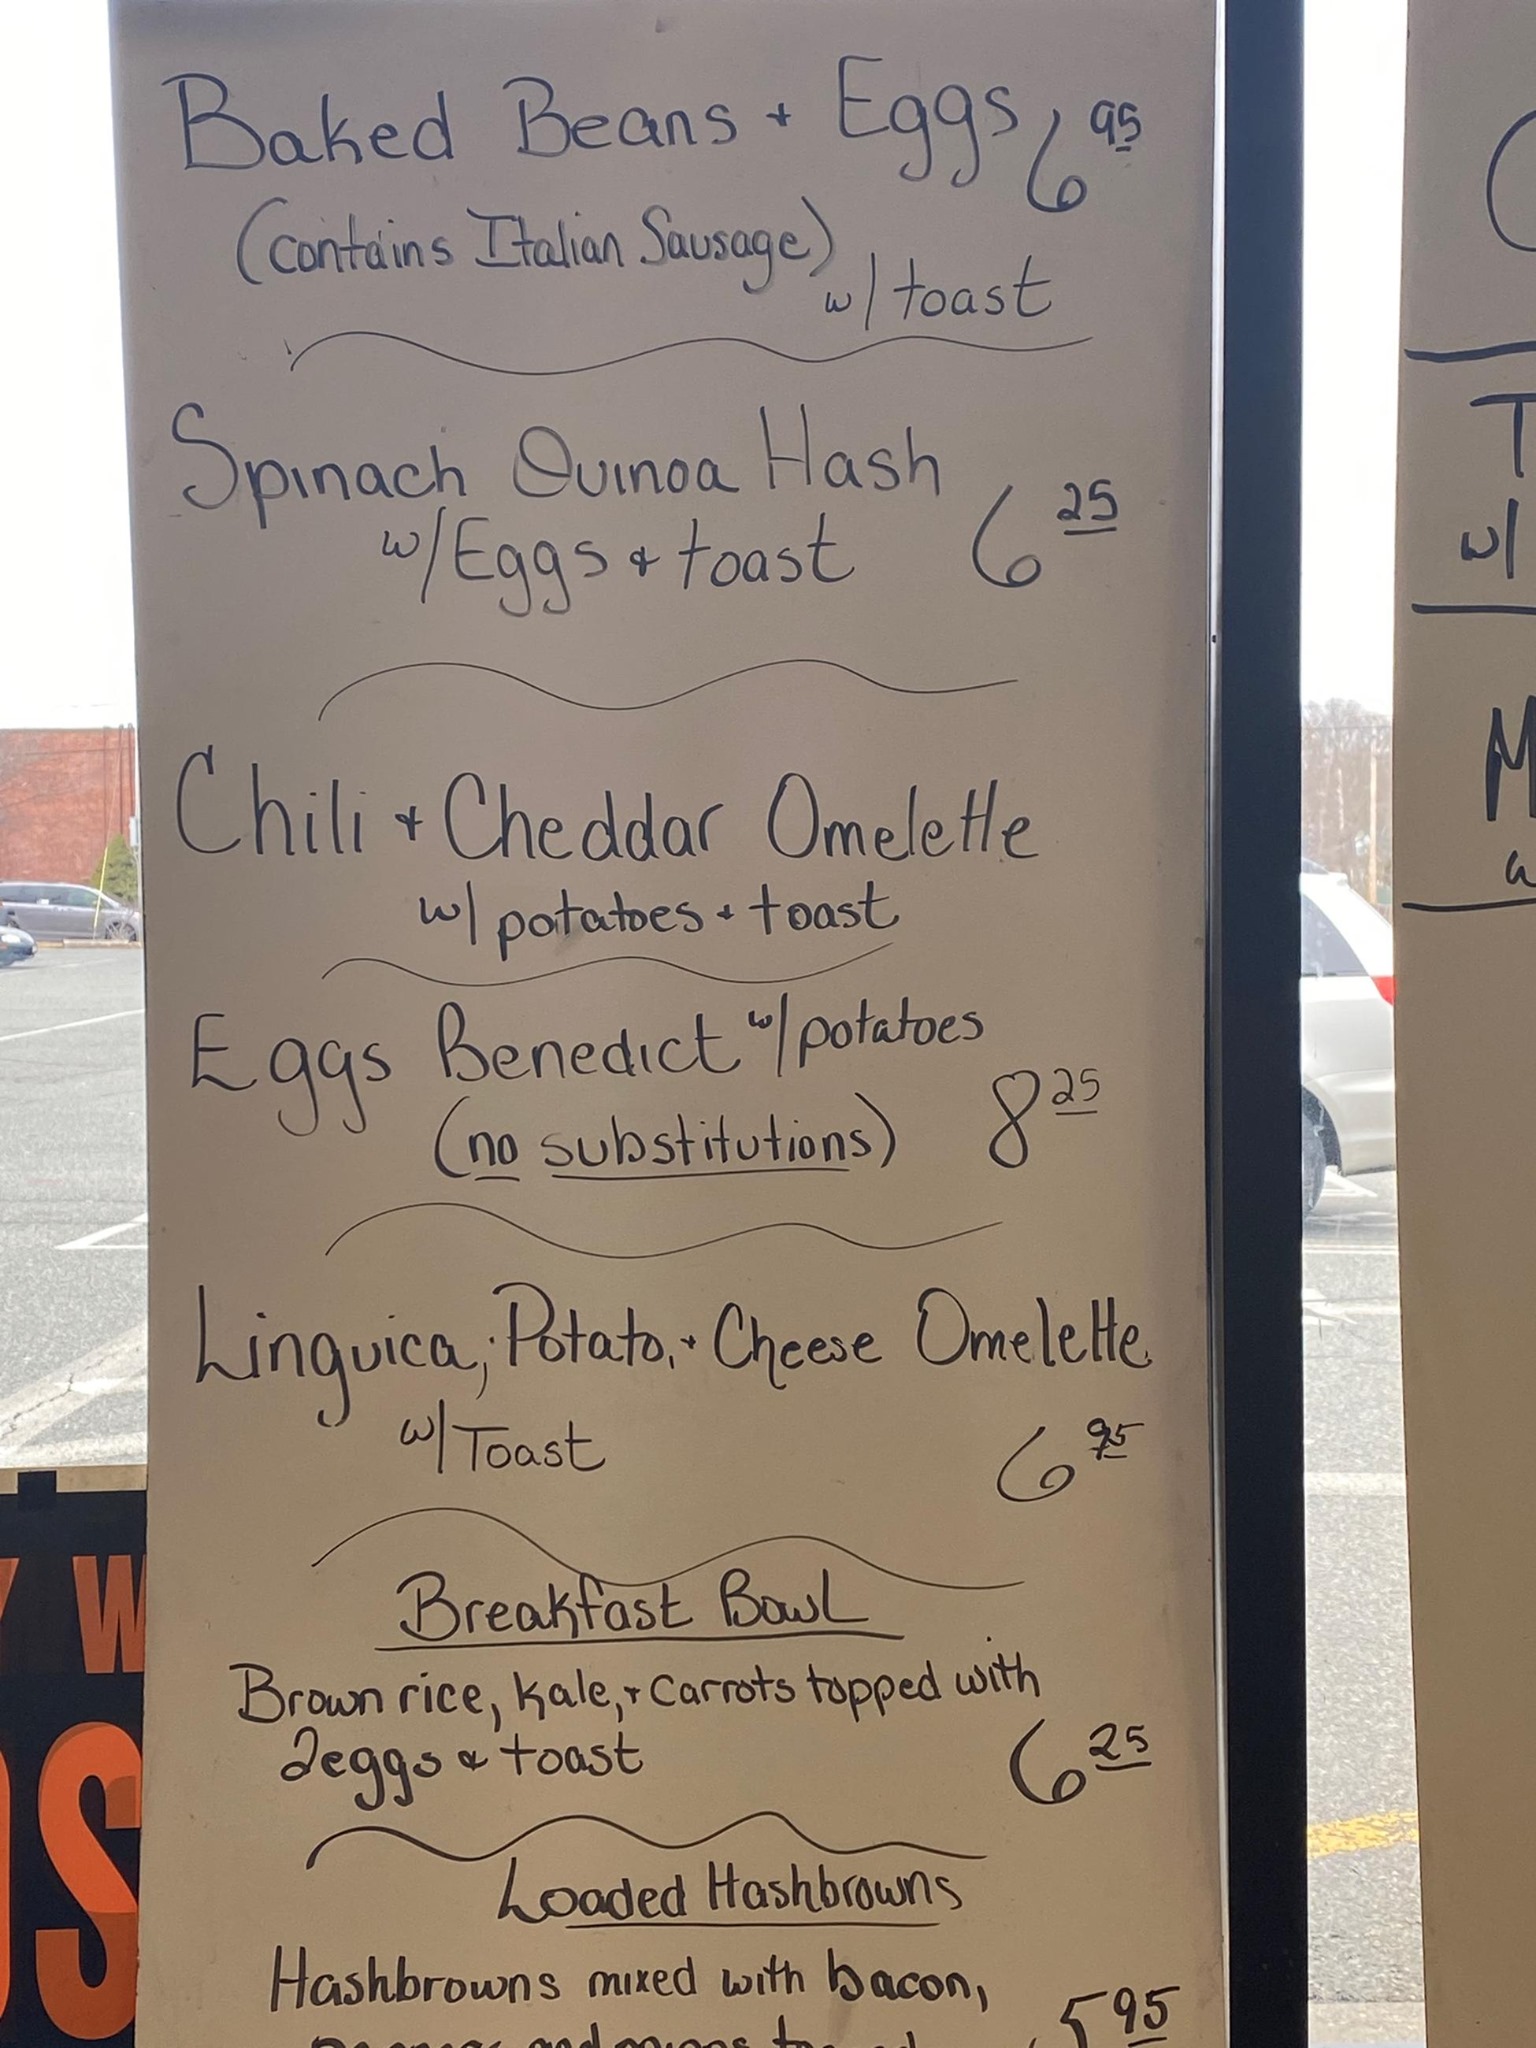 Baked Beans + Eggs 6 95
(contains Italian Sausage)
w/ toast
Spinach Quinoa Hash
w/ Eggs + toast 6 25
Chili + Cheddar Omelette
w/ potatoes + toast
Eggs Benedict w/ potatoes
(no substitutions) 8 25
Linguica, Potato, + Cheese Omelette
w/ Toast 6 95
Breakfast Bowl
Brown rice, kale, + carrots topped with
2 eggs + toast 6 25
Loaded Hashbrowns
Hashbrowns mixed with bacon,
5 95
T
w/
M
W
OS